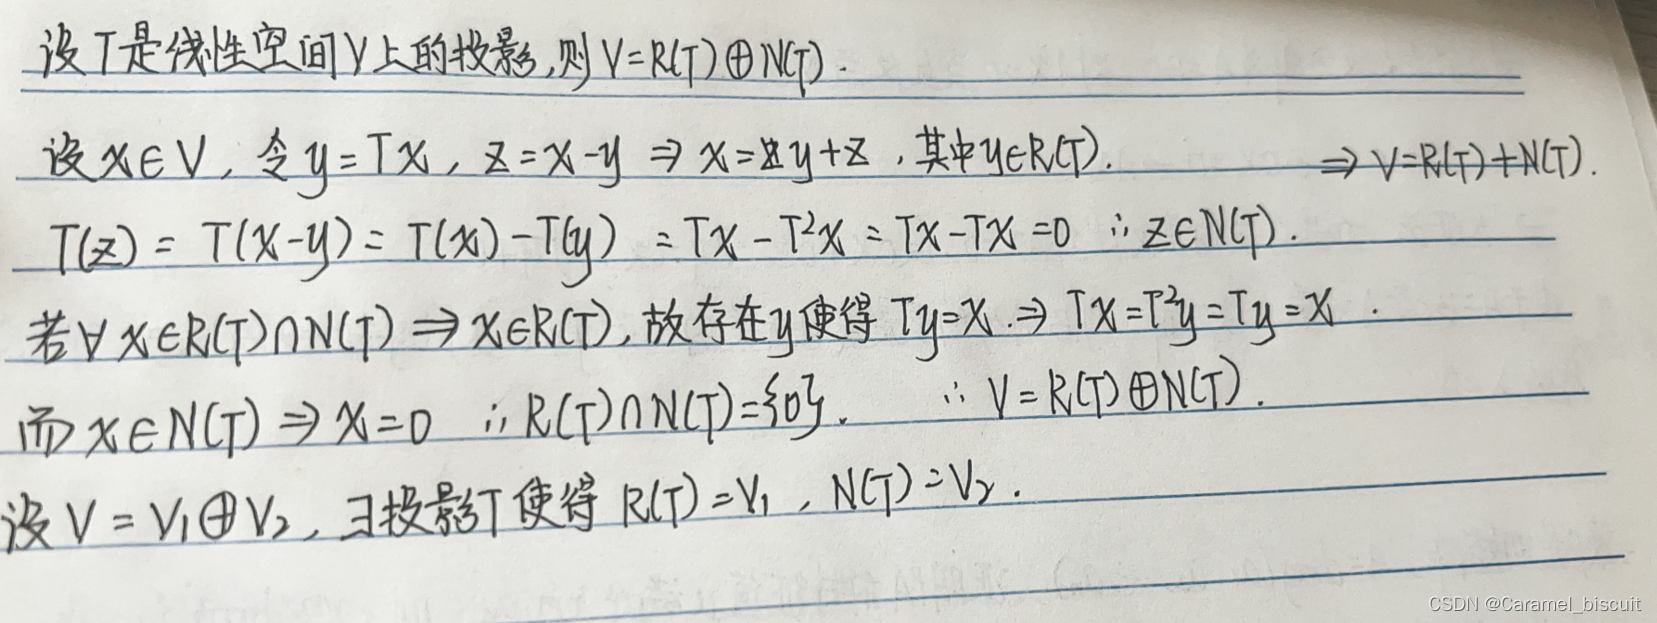 设T是线性空间V上的投影,则V=R(T)⊕N(T).
设x∈V, 令y=Tx, z=x-y ⇒ x=y+z, 其中y∈R(T). ⇒ V=R(T)+N(T).
T(z) = T(x-y) = T(x)-T(y) = Tx-T²x = Tx-Tx=0 ∴ z∈N(T).
若∀x∈R(T)∩N(T) ⇒ x∈R(T), 故存在y使得Ty=x. ⇒ Tx=T²y=Ty=x.
而x∈N(T) ⇒ x=0 ∴ R(T)∩N(T)={0}. ∴ V=R(T)⊕N(T).
设V=V₁⊕V₂, ∃投影T使得R(T)=V₁, N(T)=V₂.
CSDN @Caramel_biscuit